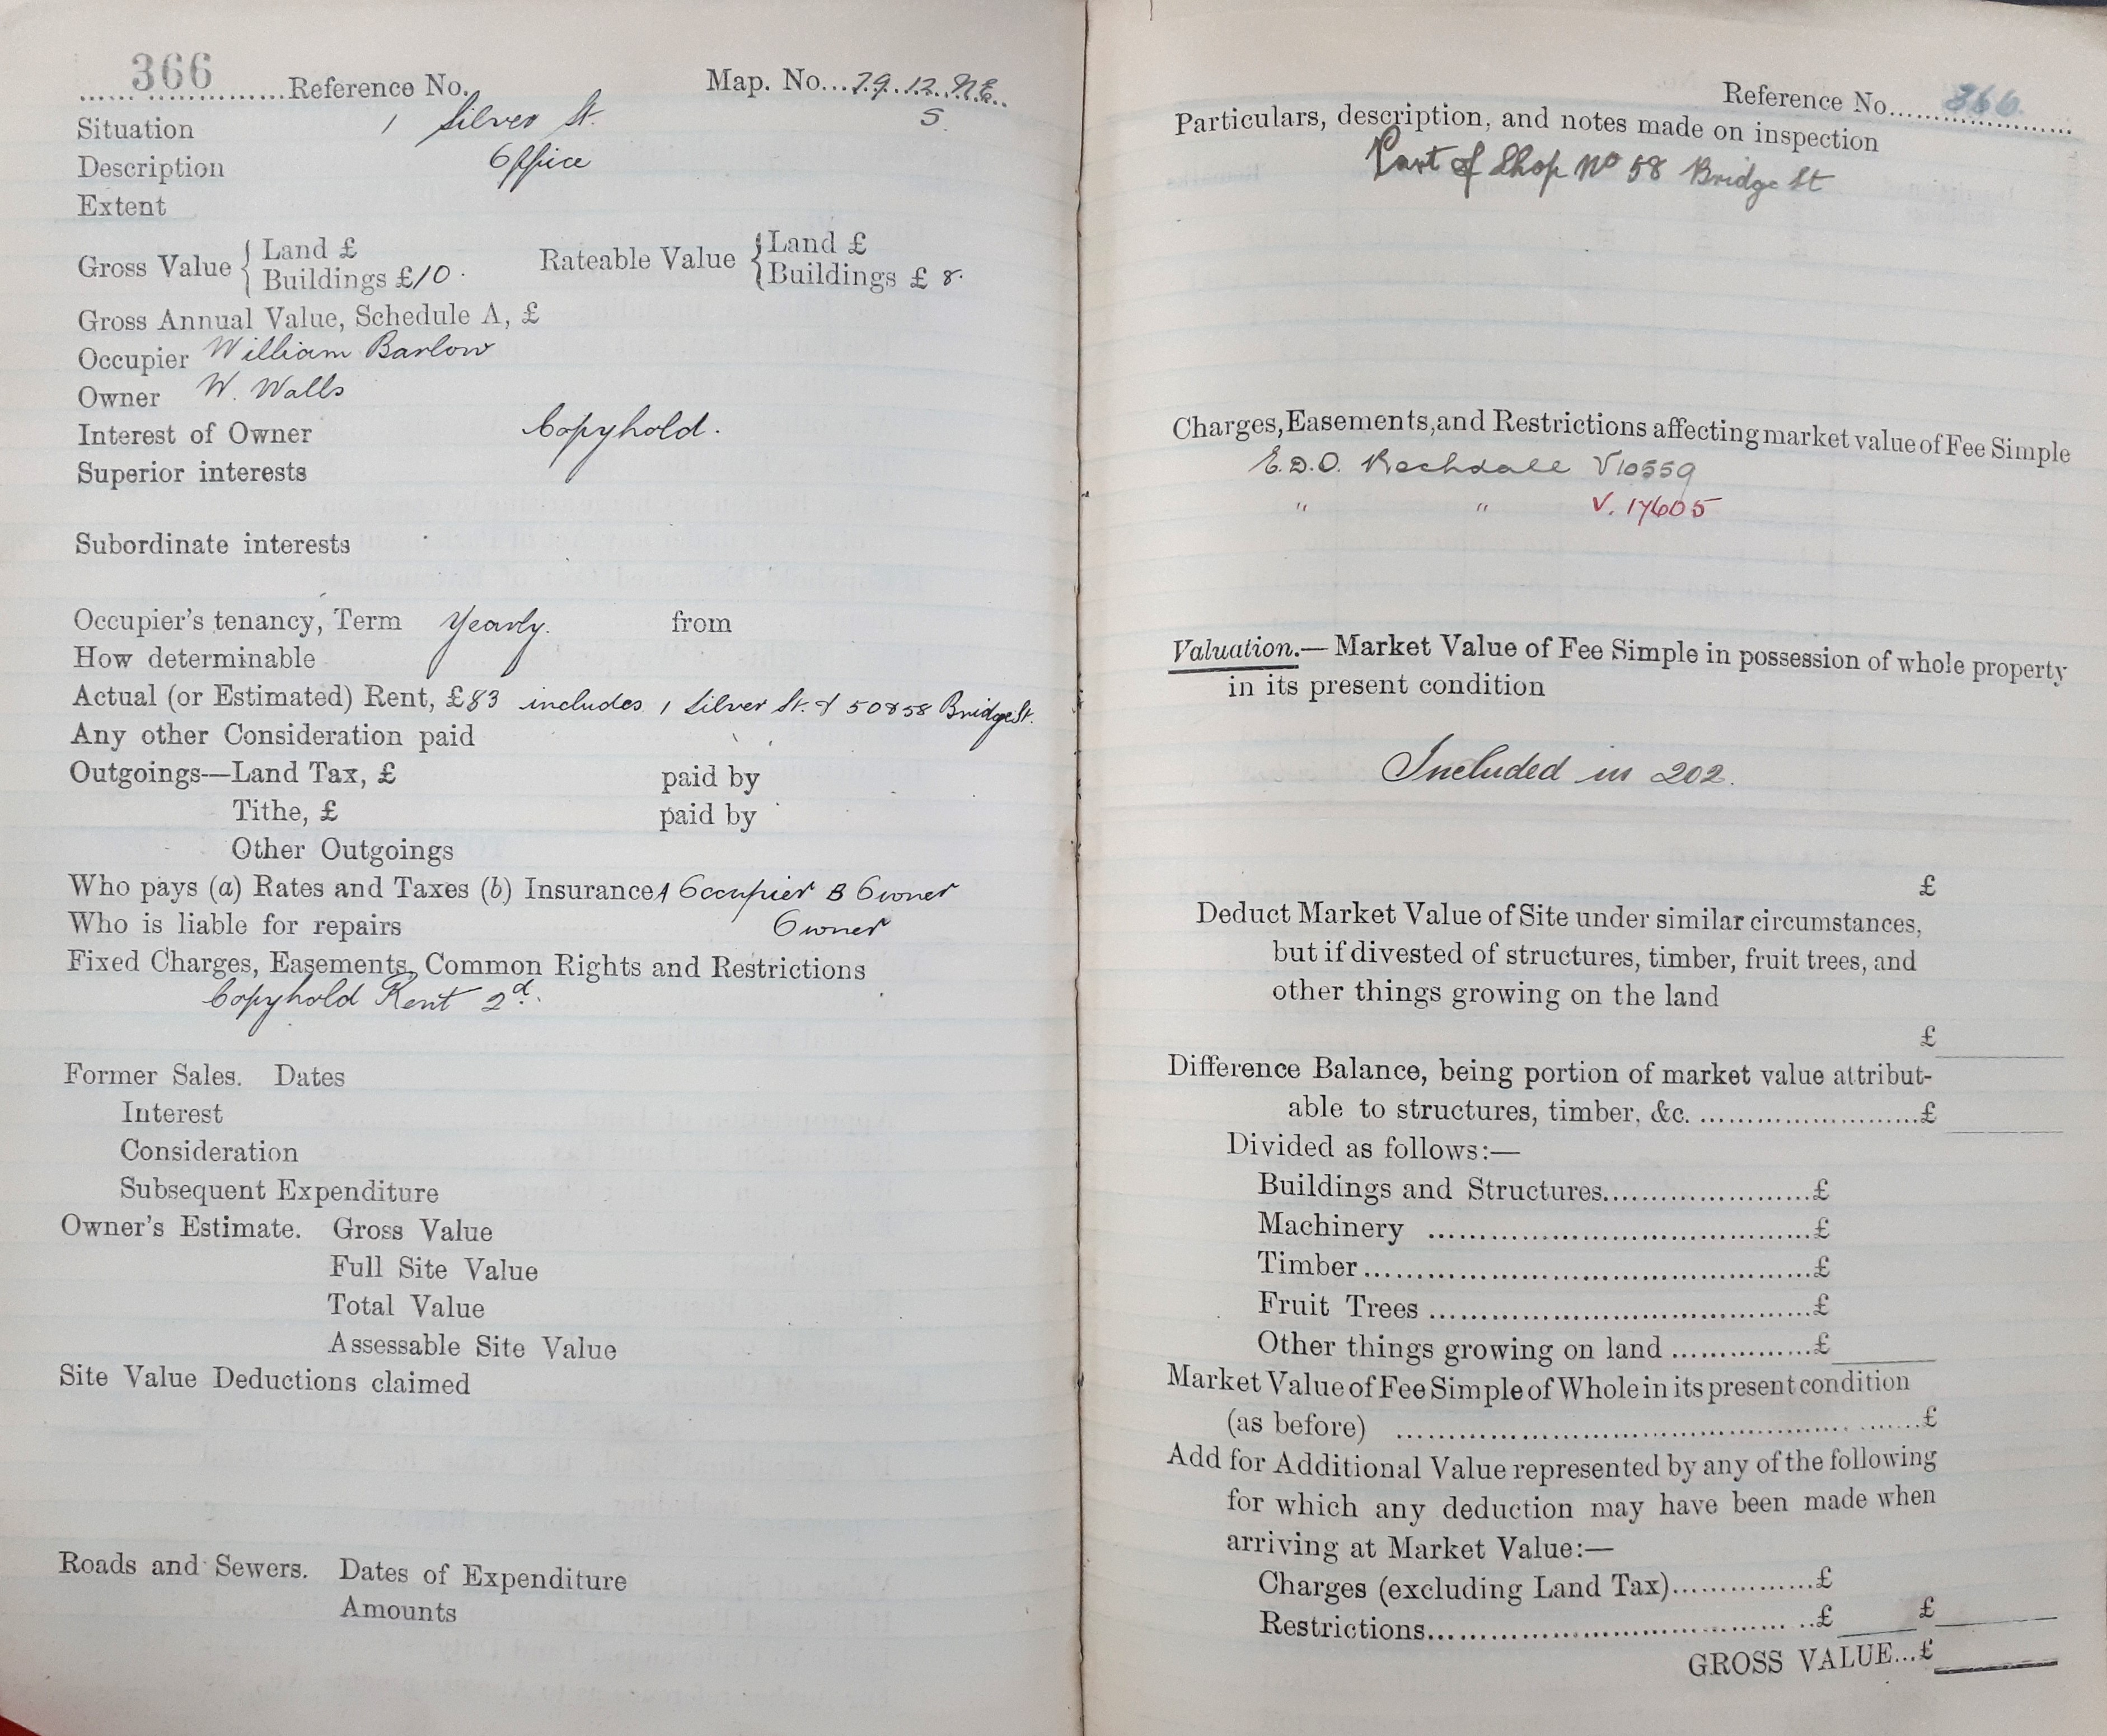 366 Reference No. Map. No. 79.12.N.E.
S.
Situation 1 Silver St.
Description Office
Extent
Gross Value { Land £ Rateable Value { Land £
Buildings £10. Buildings £ 8.
Gross Annual Value, Schedule A, £
Occupier William Barlow
Owner W. Walls
Interest of Owner Copyhold.
Superior interests
Subordinate interests
Occupier's tenancy, Term Yearly. from
How determinable
Actual (or Estimated) Rent, £83 includes 1 Silver St. & 50 & 58 Bridge St.
Any other Consideration paid
Outgoings—Land Tax, £ paid by
Tithe, £ paid by
Other Outgoings
Who pays (a) Rates and Taxes (b) Insurance A Occupier B Owner
Who is liable for repairs Owner
Fixed Charges, Easements, Common Rights and Restrictions
Copyhold Rent 2d.
Former Sales. Dates
Interest
Consideration
Subsequent Expenditure
Owner's Estimate. Gross Value
Full Site Value
Total Value
Assessable Site Value
Site Value Deductions claimed
Roads and Sewers. Dates of Expenditure
Amounts
Reference No. 366
Particulars, description, and notes made on inspection
Part of Shop No 58 Bridge St
Charges, Easements, and Restrictions affecting market value of Fee Simple
E.D.O. Rochdale V10559
" " V. 17605
Valuation.— Market Value of Fee Simple in possession of whole property
in its present condition
Included in 202.
£
Deduct Market Value of Site under similar circumstances,
but if divested of structures, timber, fruit trees, and
other things growing on the land
£
Difference Balance, being portion of market value attribut-
able to structures, timber, &c. £
Divided as follows:—
Buildings and Structures £
Machinery £
Timber £
Fruit Trees £
Other things growing on land £
Market Value of Fee Simple of Whole in its present condition
(as before) £
Add for Additional Value represented by any of the following
for which any deduction may have been made when
arriving at Market Value:—
Charges (excluding Land Tax) £
Restrictions £ £
GROSS VALUE...£